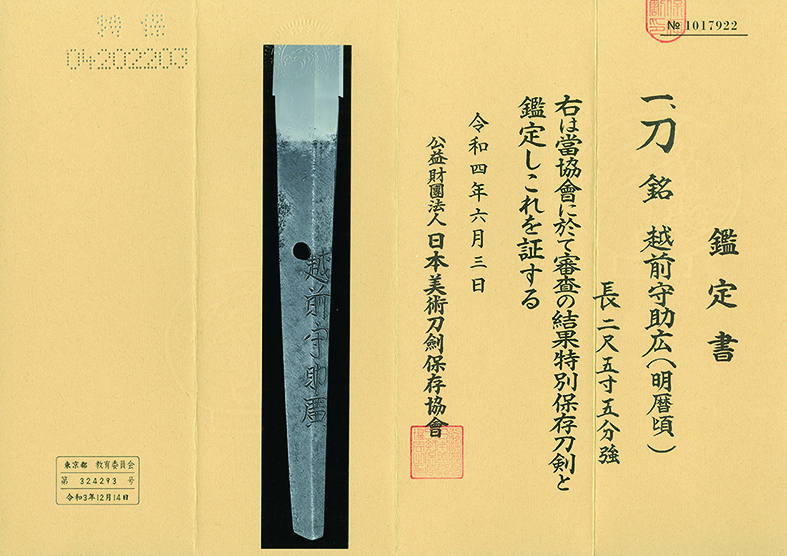 № 1017922
鑑定書
一、刀 銘 越前守助広(明暦頃)
長二尺五寸五分強
右は當協會に於て審査の結果特別保存刀剣と
鑑定しこれを証する
令和四年六月三日
公益財團法人 日本美術刀劍保存協會
越前守助廣
特保
04202203
東京都 教育委員会
第 324293 号
令和3年12月14日